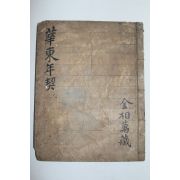 華東年契
金相萬藏